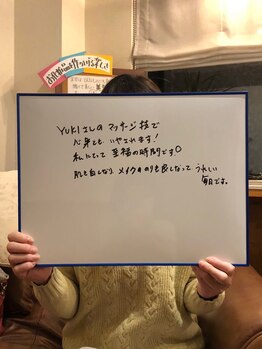 YUKIさんの マッサージ技で
心身ともに いやされます!
私にとって 至福の時間です♡
肌も白くなり、メイクのりも良くなって うれしい
毎日です。